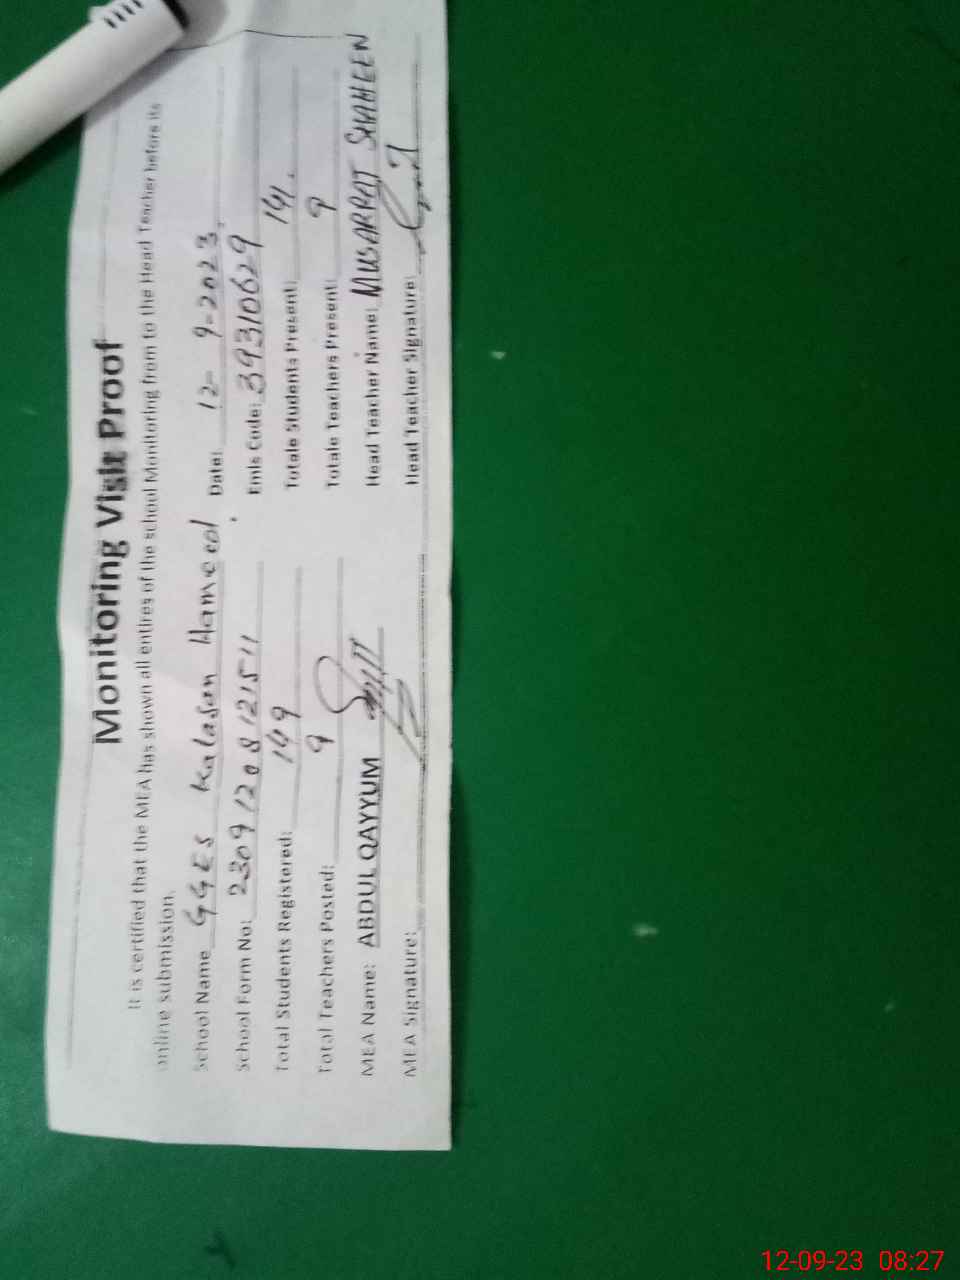 Monitoring Visit Proof
It is certified that the MEA has shown all entires of the school Monitoring from to the Head Teacher before its
online submission.
School Name GGES Kalasan Hameed Date: 12- 9-2023
School Form No: 23091208121511 Emis Code: 39310629
Total Students Registered: 149 Totale Students Present: 141.
Total Teachers Posted: 9 Totale Teachers Present: 9
MEA Name: ABDUL QAYYUM Head Teacher Name: MUSARRAT SHAHEEN
MEA Signature: Head Teacher Signature:
12-09-23 08:27